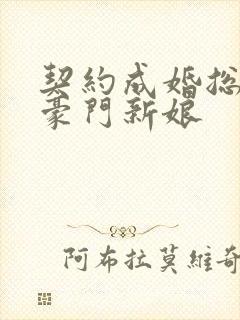 契約成婚總
豪門新娘
阿布拉莫維奇